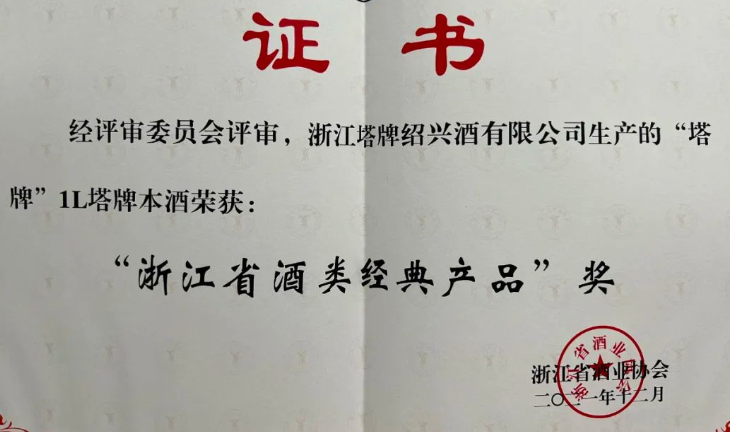 证书
经评审委员会评审，浙江塔牌绍兴酒有限公司生产的“塔
牌”1L塔牌本酒荣获：
“浙江省酒类经典产品”奖
浙江省酒业协会
二〇二一年十二月
浙江省酒业协会